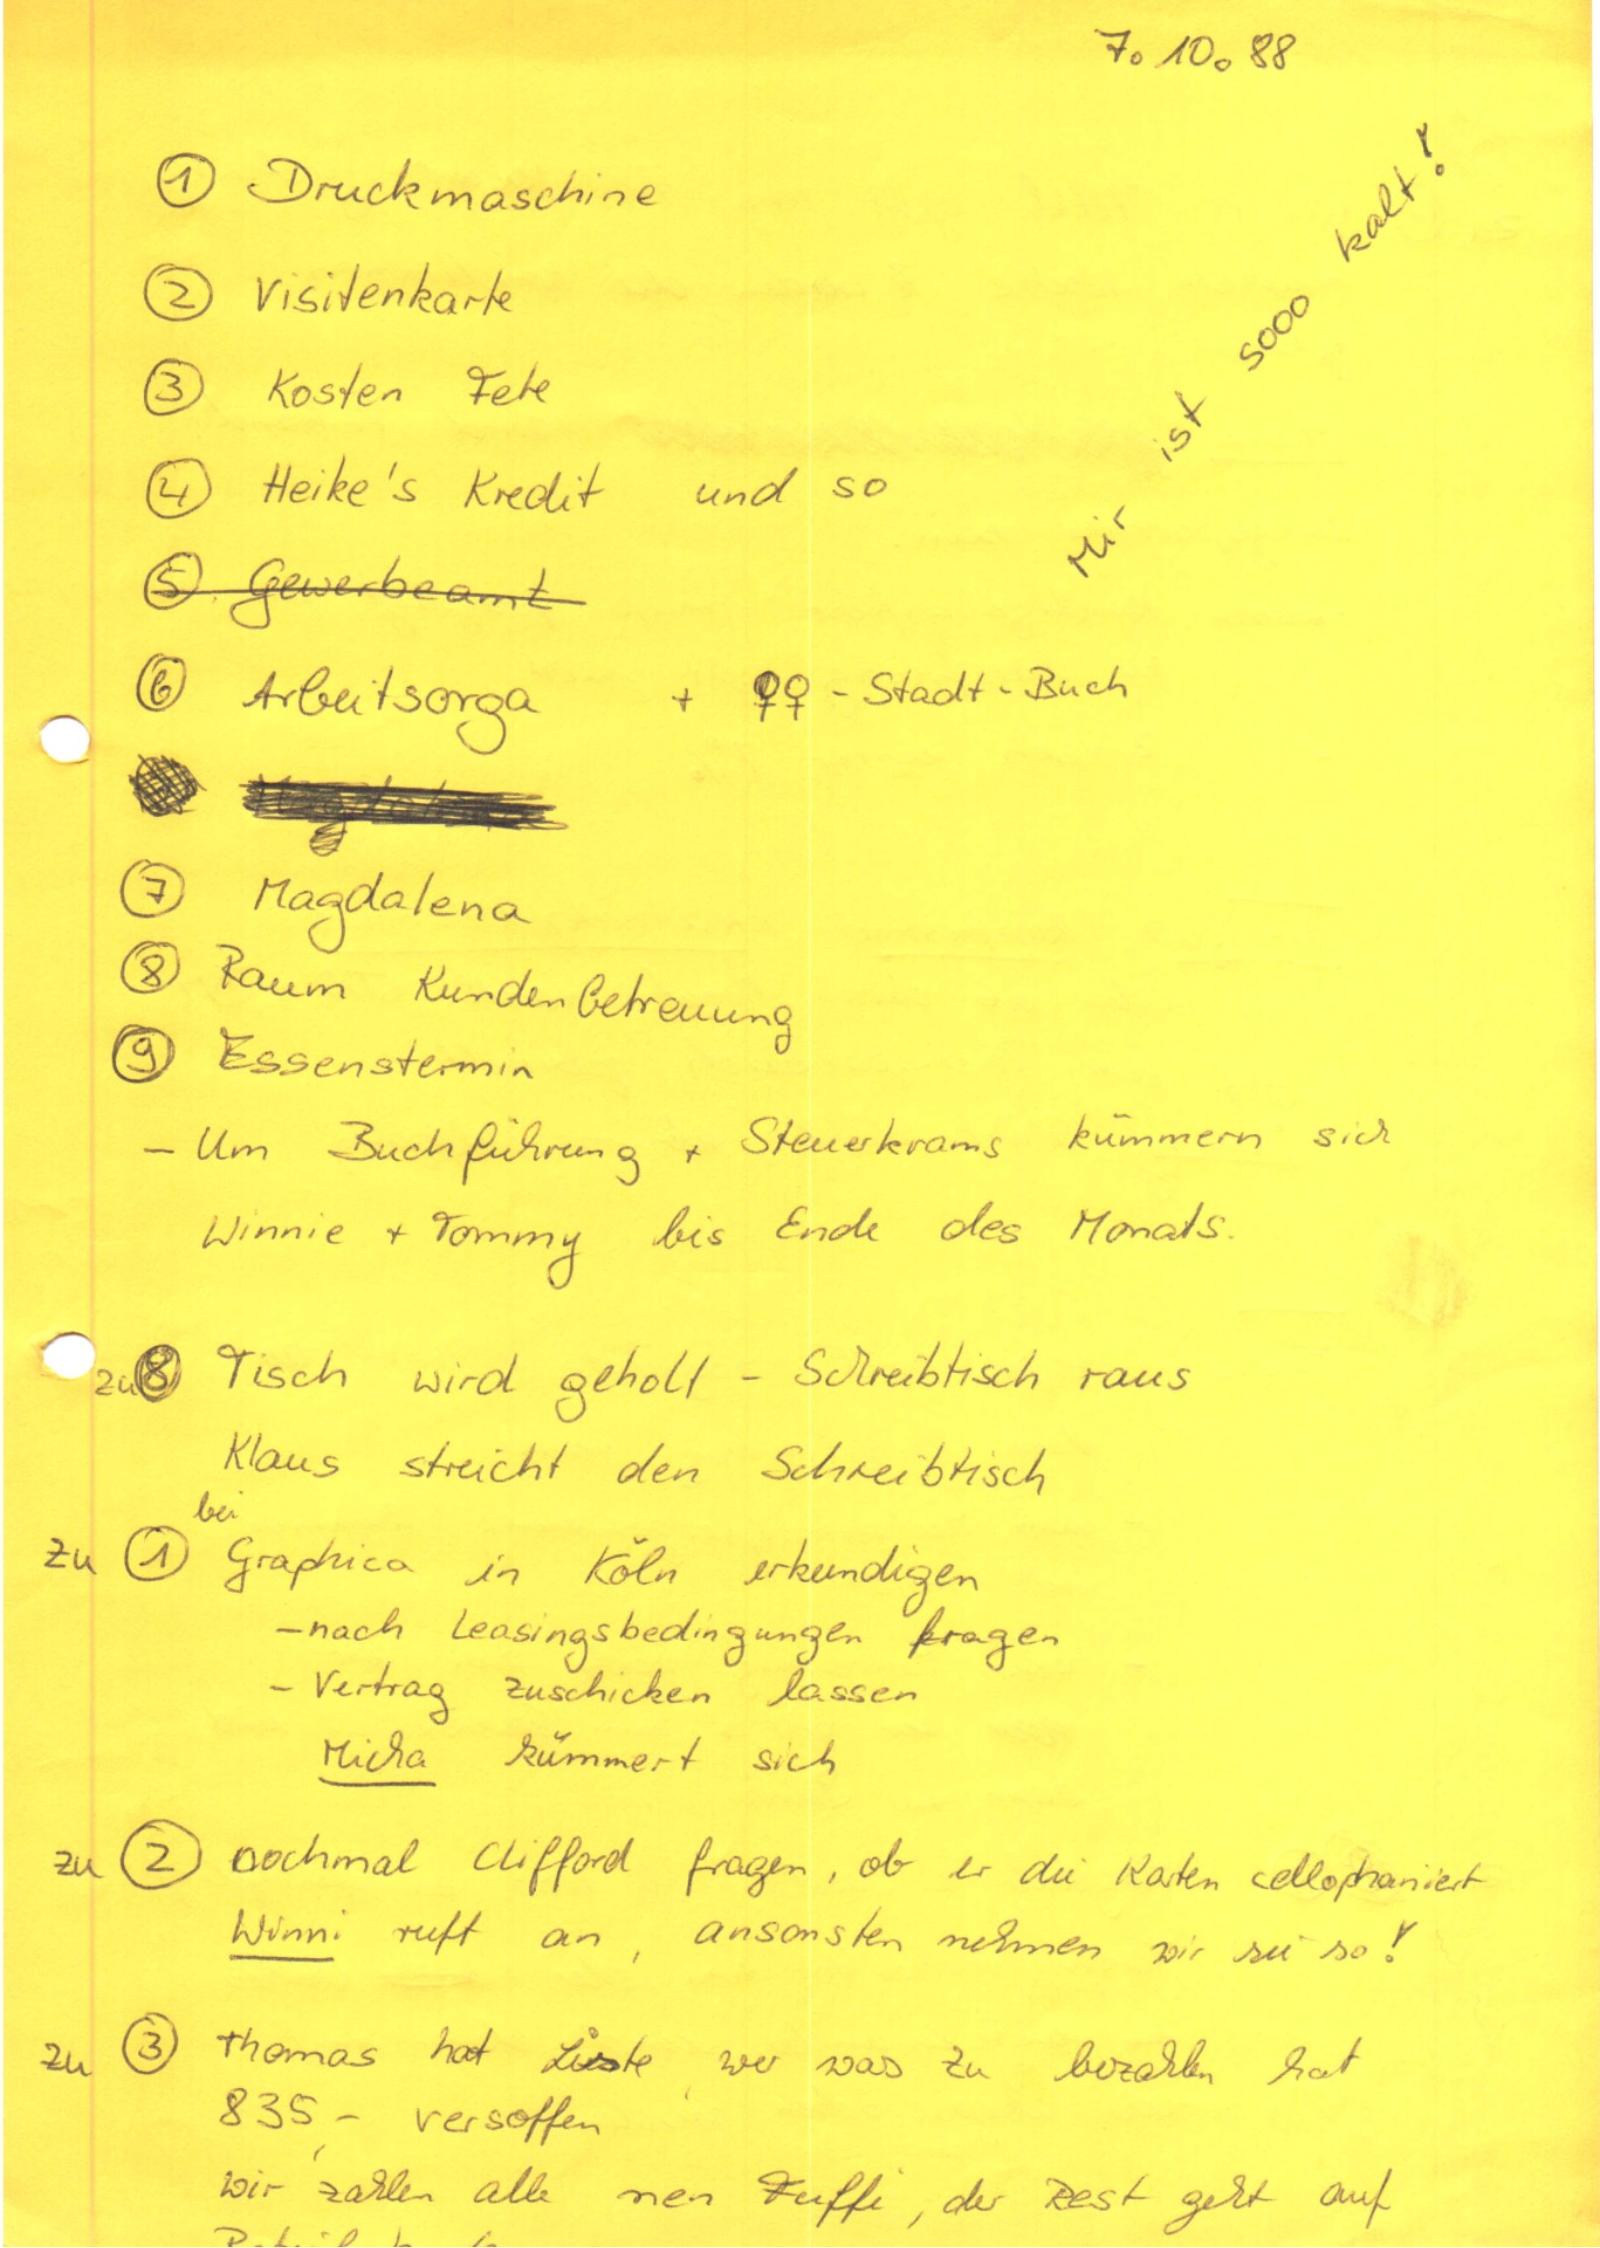 7. 10. 88
① Druckmaschine
② Visitenkarte
③ Kosten Fete
④ Heike's Kredit und so
⑤ Gewerbeamt
⑥ Arbeitsorga + ♀♀ - Stadt - Buch
⑦ Magdalena
⑧ Raum Kundenbetreuung
⑨ Essenstermin
Mir ist sooo kalt!
- Um Buchführung + Steuerkrams kümmern sich
Winnie + Tommy bis Ende des Monats.
zu ⑧ Tisch wird geholt - Schreibtisch raus
Klaus streicht den Schreibtisch
bei
zu ① Graphica in Köln erkundigen
- nach Leasingsbedingungen fragen
- Vertrag zuschicken lassen
Micha kümmert sich
zu ② nochmal Clifford fragen, ob er die Karten cellophaniert
Winni ruft an, ansonsten nehmen wir sie so!
zu ③ Thomas hat Liste, wer was zu bezahlen hat
835,- versoffen
wir zahlen alle nen Fuffi, der Rest geht auf